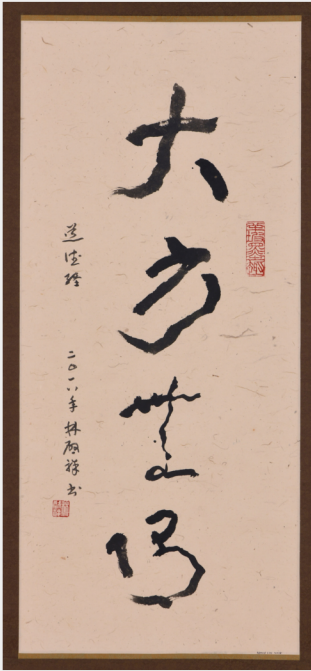 大方無隅
道德經
二〇一八年 林啟祥書